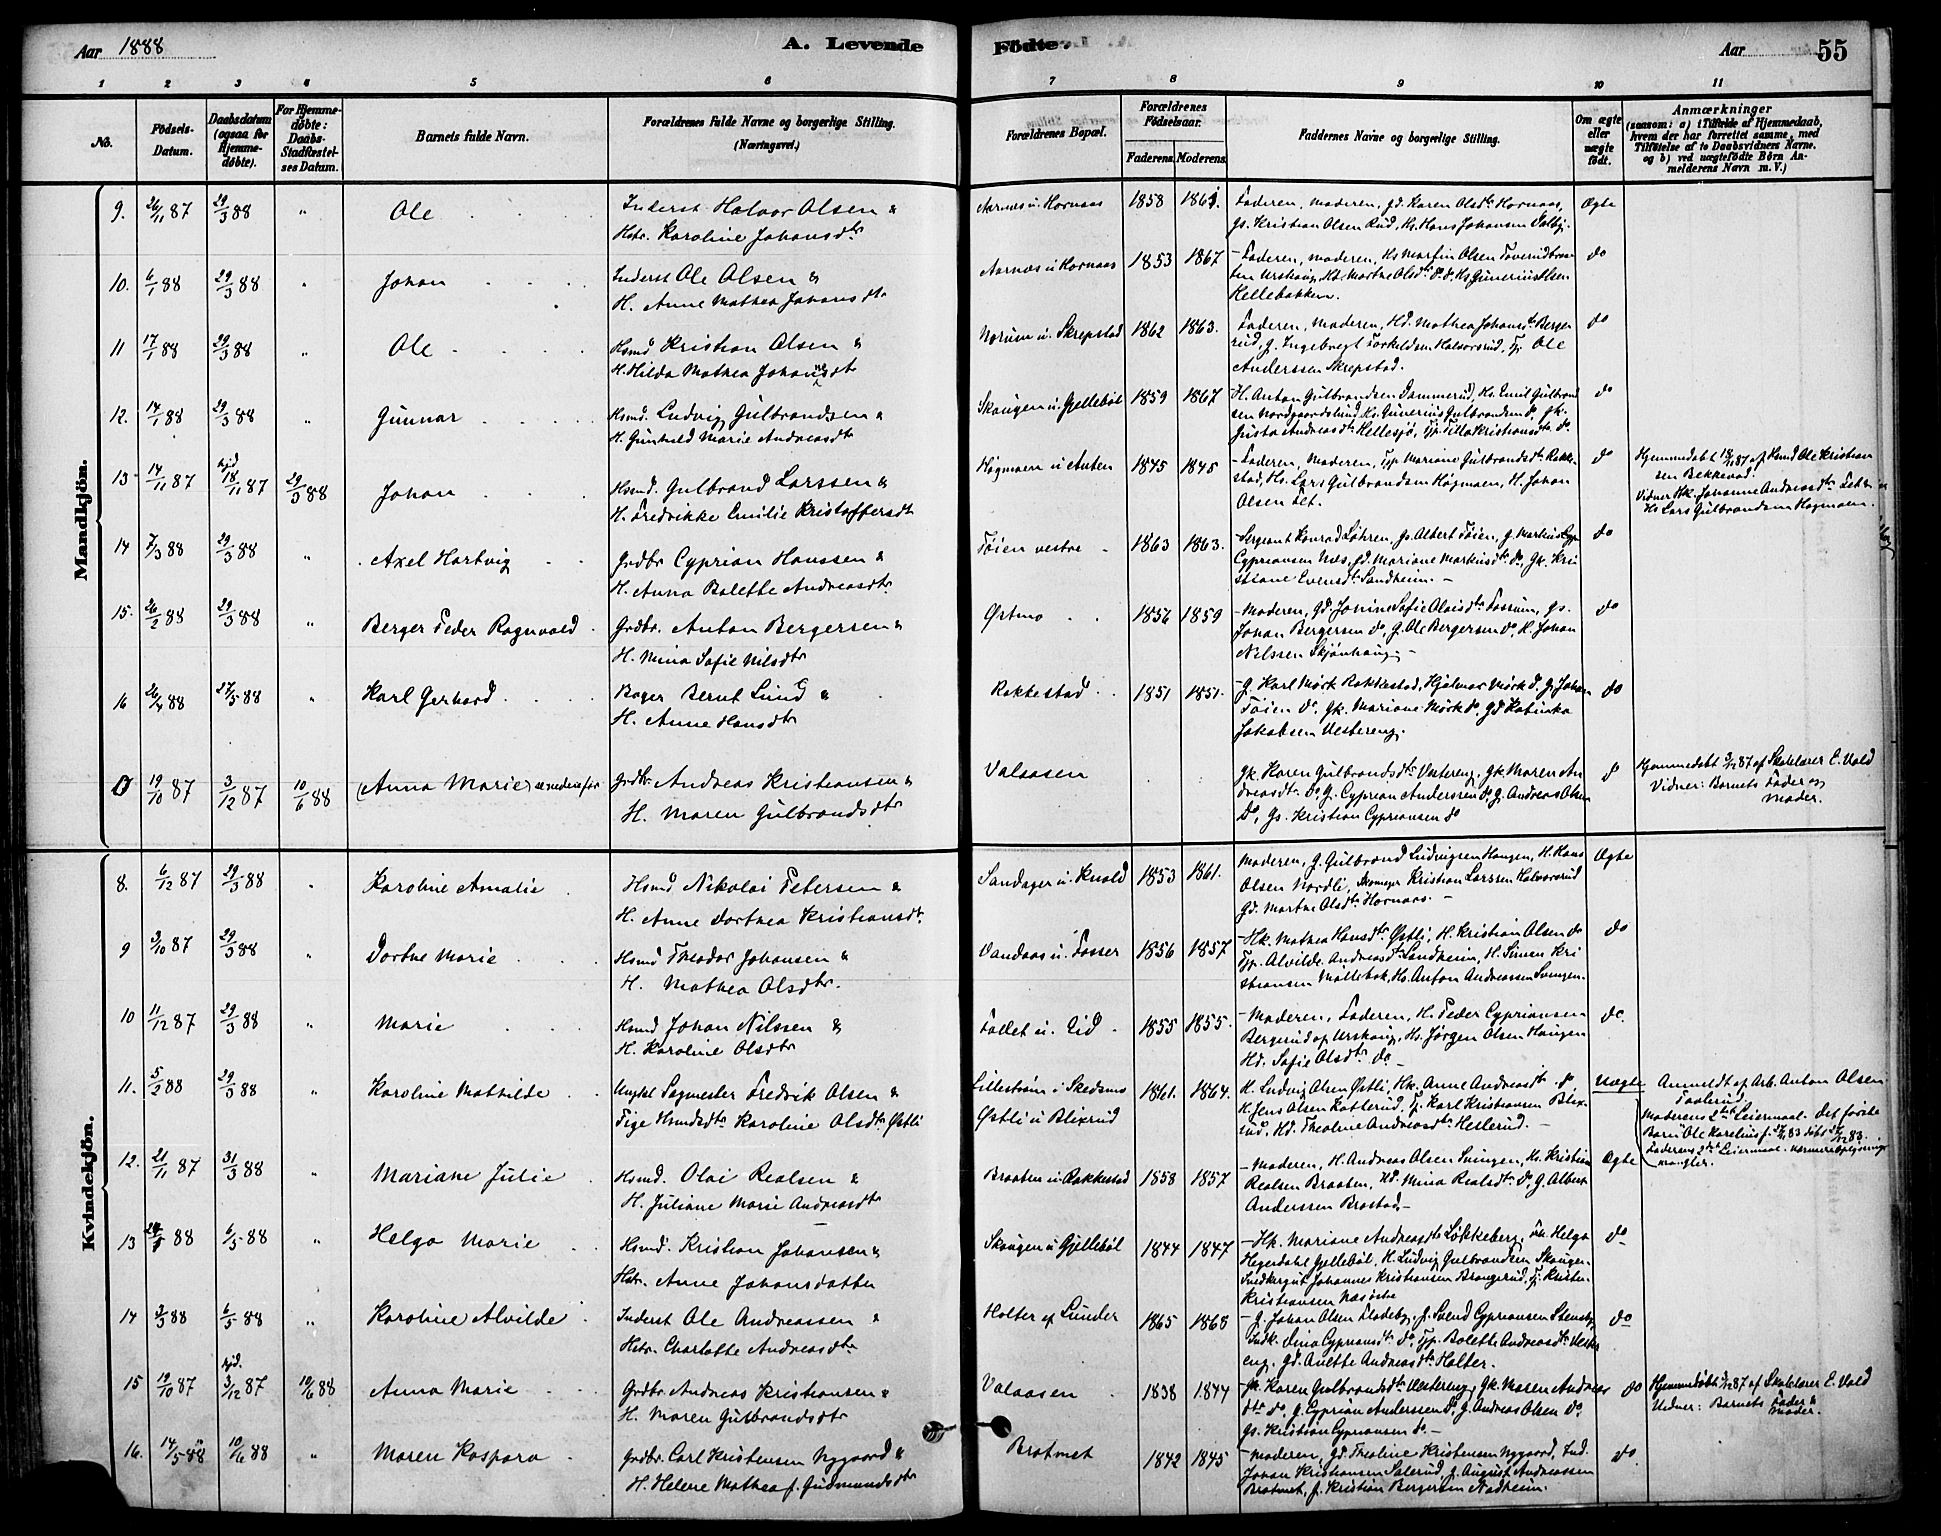 Aar 1888
A. Levende Fødte.
Aar 55
1 2 3 4 5 6 7 8 9 10 11
No.
Fødsels-Datum.
Daabsdatum (ogsaa for Hjemmedøbte).
For Hjemmedøbte: Daabs-Stadfæstelses Datum.
Barnets fulde Navn.
Forældrenes fulde Navne og borgerlige Stilling. (Næringsvei.)
Forældrenes Bopæl.
Forældrenes Fødselsaar.
Faderens Moderens
Faddernes Navne og borgerlige Stilling.
Om ægte eller uægte født.
Anmærkninger (saasom: a) i Tilfælde af Hjemmedaab, hvem der har forrettet samme, med Tilføielse af to Daabsvidners Navne, og b) ved uægtefødte Børn Anmelderens Navn m. V.)
Mandkjøn.
9. 26/11 87 29/3 88 " Ole
Inderst Halvor Olsen &
Hstr. Karoline Johansdtr
Aarnæs u. Hornaas 1858 1861.
Faderen, Moderen, gd. Karen Olsdtr Hornaas,
gs. Kristian Olsen Rud, Hs. Hans Johansen Dalby. Ægte
10. 6/1 88 29/3 88 " Johan
Inderst Ole Olsen &
H. Anne Mathea Johansdtr
Aarnæs u Hornaas 1853 1867
Faderen, Moderen, Hs Martin Olsen
Urskoug, Hd. Marthe Olsdtr do, Hs Gunerius Olsen
Hellebakken. do
11 17/1 88 29/3 88 " Ole
Hsmd Kristian Olsen &
H. Hilda Mathea Johansdtr
Norum u. Skrepstad 1862 1863.
Faderen, Moderen, Hd. Mathea Johansdtr Berger
rud, g. Ingebregt Torkeldsen Halvorsrud, Tj. Ole
Anderssen Skrepstad. do
12. 14/1 88 29/3 88 " Gunnar
Hsmd. Ludvig Gulbrandsen &
H. Gunhild Marie Andreasdtr
Skougen u. Gjellebøl 1859 1867
H. Anton Gulbrandsen Dammerud, Hs. Emil Gulbrand
sen Nordgaardslund, Hs. Gunerius Gulbrandsen do, gk.
Gusta Andreasdtr Hellesjø, Tjp. Tilla Kristiansdtr do. do
13. 14/11 87 hjd. 18/11 87 29/3 88 Johan
Hsmd. Gulbrand Larssen &
H. Fredrikke Emilie Kristoffersdtr
Høgmoen u Anten 1845 1845
Faderen, Moderen, Tjp Mariane Gulbrandsdtr Rakke-
stad, Hs. Lars Gulbrandsen Høgmoen, H. Johan
Olsen Tet. do
Hjemmedøbt 18/11 87 af Hsmd Ole Kristian
sen Bekkevad.
Vidner Hk. Johanne Andreasdtr Tet &
Hs Lars Gulbrandsen Høgmoen.
14 7/3 88 29/3 88 " Axel Hartvig
Grdbr Cyprian Hanssen &
H. Anna Bolette Andreasdtr
Tøien vestre 1863 1863.
Sergeant Konrad Løhren, gs. Albert Tøien, g. Martius
Cypriansen Næs, gd. Mariane Markusdtr do, Gk. Kri
stiane Evensdtr Sandheim. do
15. 26/2 88 29/3 88 " Berger Peder Ragnvald
Grdbr. Anton Bergersen &
H. Mina Sofie Nilsdtr
Østmo 1856 1859
Moderen, Gd. Jonine Sofie Olaisdtr Fossum, gs.
Johan Bergersen do, G. Ole Bergersen do, H. Johan
Nilssen Skjønhaug. do
16 26/4 88 27/5 88 " Karl Gerhard
Bager Bernt Lund &
H. Anne Hansdtr
Rakkestad 1851 1851.
G. Karl Mørk Rakkestad, Hjalmar Mørk do, G. Johan
Tøien do, Gk. Mariane Mørk do, Gd Katinka
Jakobsen Vestereng. do
0 19/10 87 3/12 87 10/6 88 (Anna Marie) se nedenfor
Grdbr. Andreas Kristiansen &
H. Maren Gulbrandsdtr
Valaasen
Gk. Karen Gulbrandsdtr Vestereng, Gk. Maren An
dreasdtr do, G. Cyprian Anderssen do, G. Andreas Olsen
do, Gs. Kristian Cypriansen do
Hjemmedøbt 3/12 87 af Skolelærer E. Vold
Vidner: Barnets Fader og
Moder.
Kvindekjøn.
8. 6/12 87 29/3 88 " Karoline Amalie
Hsmd Nikolai Petersen &
H. Anne Dorthea Kristiansdtr.
Sandager u. Knold 1853 1861.
Moderen, G. Gulbrand Ludvigsen Haugen, H. Hans
Olsen Nordli, Skomager Kristian Larssen Halvorsrud
Gd. Marthe Olsdtr Hornaas. Ægte
9 3/10 87 29/3 88 " Dorthe Marie
Hsmd Theodor Johansen &
H. Mathea Olsdtr.
Vandaas u. Fosser 1856 1857
Hk. Mathea Hansdtr Østli, H. Kristian Olsen do
Tjp. Alvilde Andreasdtr Sandheim, H. Simen Kri
stiansen Møllebak, Hs. Anton Andreassen Svingen. do
10 11/12 87 29/3 88 " Marie
Hsmd Johan Nilssen &
H. Karoline Olsdtr
Follet u. Eid 1855 1855.
Moderen, Faderen, H. Peder Cypriansen
Bergerud af Urskoug, Hs. Jørgen Olsen Haugen
Hd. Sofie Olsdtr do do
11. 5/2 88 29/3 88 " Karoline Mathilde
Ungkl Sagmester Fredrik Olsen &
Pige Hsmdsdtr Karoline Olsdtr. Østli
Lillestrøm i Skedsmo
Østli u Blixrud 1861. 1864.
H. Ludvig Olsen Østli, Hk. Anne Andreasdtr do,
H. Jens Olsen Katterud, Tj. Karl Kristiansen Blix
rud, Hd. Theoline Andreasdtr Hellerud. Uægte
Anmeldt af Arb. Anton Olsen
Moderens 2det Leiermaal. Det første
Barn Ole Karelius f. 83 døbt 83.
Faderens 2det Leiermaal. Nærmere Oplysninger
mangler.
12. 21/11 87 31/3 88 " Mariane Julie
Hsmd. Olai Realsen &
H. Juliane Marie Andreasdtr
Braaten u. Rakkestad 1858 1857
Moderen, H. Andreas Olsen Svingen, Hs. Kristian
Realsen Braaten, Hd. Mina Realsdtr do, G. Albert
Anderssen Brostad. Ægte
13 88 6/5 88 " Helga Marie
Hsmd. Kristian Johansen &
Hstr. Anne Johansdatter
Skougen u Gjellebøl 1844 1847
Hk. Mariane Andreasdtr Løkkeberg, Helga
Hegerdahl Gjellebøl, H. Ludvig Gulbrandsen Skougen
Snedkergut Johannes Kristiansen Brangerud, Tj. Kristen
Kristiansen Næs østre do
14 3/3 88 6/5 88 " Karoline Alvilde
Inderst Ole Andreassen &
Hstr. Charlotte Andreasdtr
Holter af Lunder 1865 1868
G. Johan Olsen Fladeby, g. Svend Cypriansen Stensby,
Indk. Lina Cypriansdtr do, Tjp. Bolette Andreasdtr Vester
eng, Gd. Anette Andreasdtr Holter. do
15 19/10 87 hjd. 3/12 87 10/6 88 Anna Marie
Grdbr Andreas Kristiansen &
H. Maren Gulbrandsdtr
Valaasen 1838 1844
Gk. Karen Gulbrandsdtr Vestereng, Gk. Maren Andreas
dtr do, g. Cyprian Anderssen do, g. Andreas Olsen do,
Gs. Kristian Cypriansen do. do
Hjemmedøbt 3/12 87 af Skolelærer E. Vold
Vidner: Barnets Fader &
Moder.
16. 14/5 88 10/6 88 " Maren Kaspara
Grdbr. Carl Kristensen Nygaard &
H. Helene Mathea f. Gudmundsdtr
Bratmet 1842 1845
Moderen, Gd. Theoline Kristensen Nygaard, Ind.
Johan Kristiansen Salerud, g. August Andreassen
Bratmet, g. Kristian Bergersen Nadheim. do